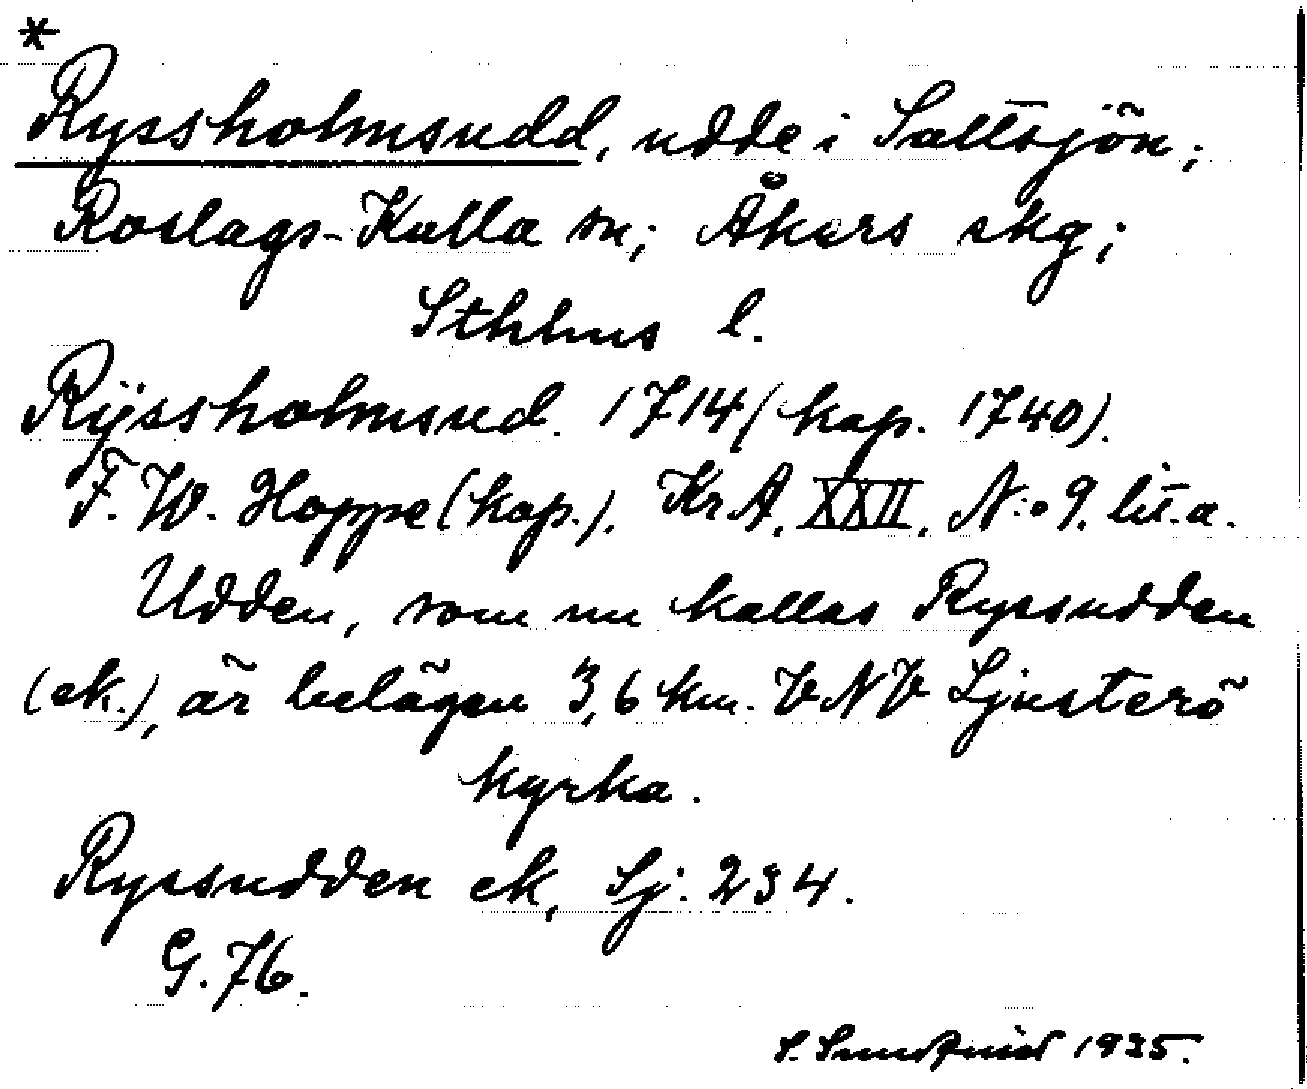 *
Ryssholmsudd, udde i Saltsjön;
Roslags-Kulla sn; Åkers skg;
Sthlms l.
Rÿssholmsud. 1714 (kop. 1740).
F. W. Hoppe (kop.). KrA. XXII. N:o 9. lit. a.
Udden, som nu kallas Ryssudden
(ek.), är belägen 3,6 km. VNV Ljusterö
kyrka.
Ryssudden ek, Sj. 234.
G. 76.
S. Sundquist 1935.